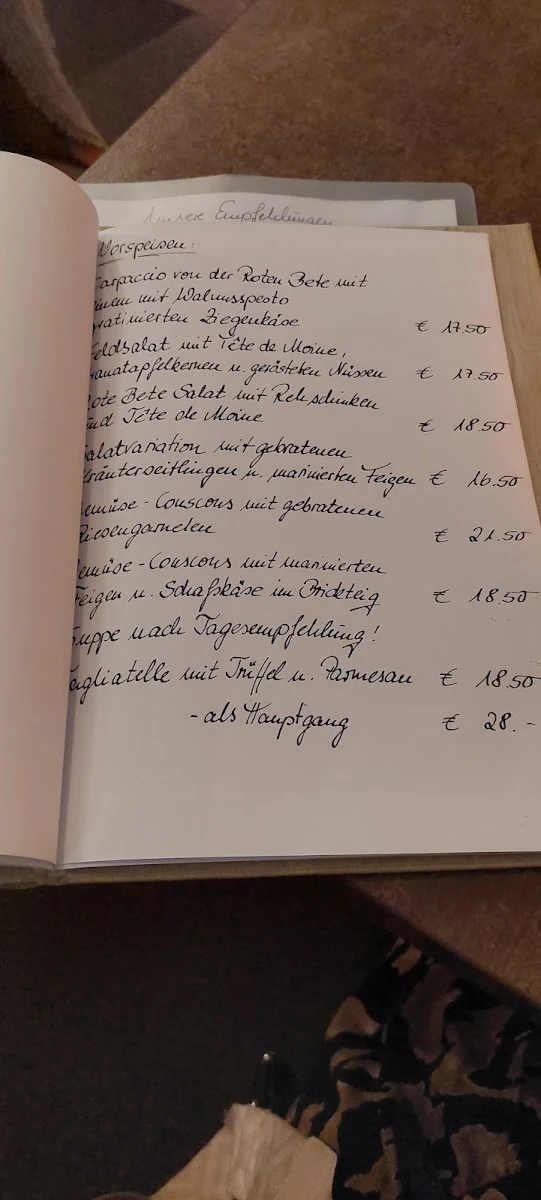 Unsere Empfehlungen
Vorspeisen:
Carpaccio von der Roten Bete mit
einem mit Walnusspesto
gratinierten Ziegenkäse € 17.50
Feldsalat mit Tête de Moine,
Granatapfelkernen u. gerösteten Nüssen € 17.50
Rote Bete Salat mit Rehschinken
und Tête de Moine € 18.50
Salatvariation mit gebratenen
Kräuterseitlingen u. marinierten Feigen € 16.50
Gemüse-Couscous mit gebratenen
Riesengarnelen € 21.50
Gemüse-Couscous mit marinierten
Feigen u. Schafskäse im Brickteig € 18.50
Suppe nach Tagesempfehlung!
Tagliatelle mit Trüffel u. Parmesan € 18.50
- als Hauptgang € 28.-